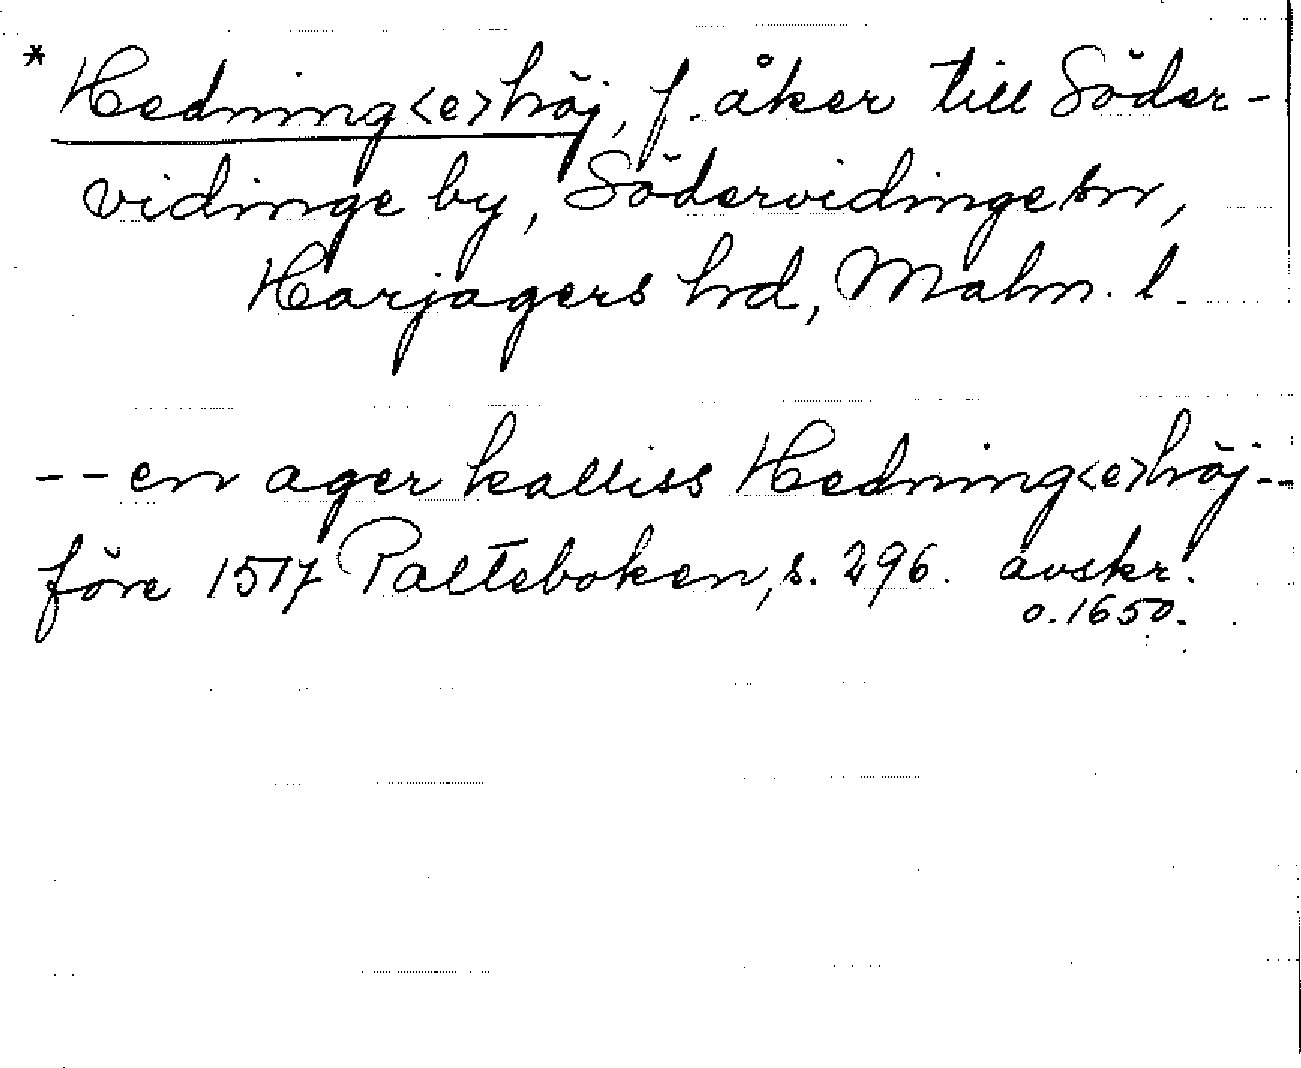 * Hedning<e>höj, f. åker till Söder-
vidinge by, Södervidinge sn,
Harjagers hd, Malm. l.
-- en ager kalliss Hedning<e>höj --
före 1517 Palteboken, s. 296. avskr.
o. 1650.